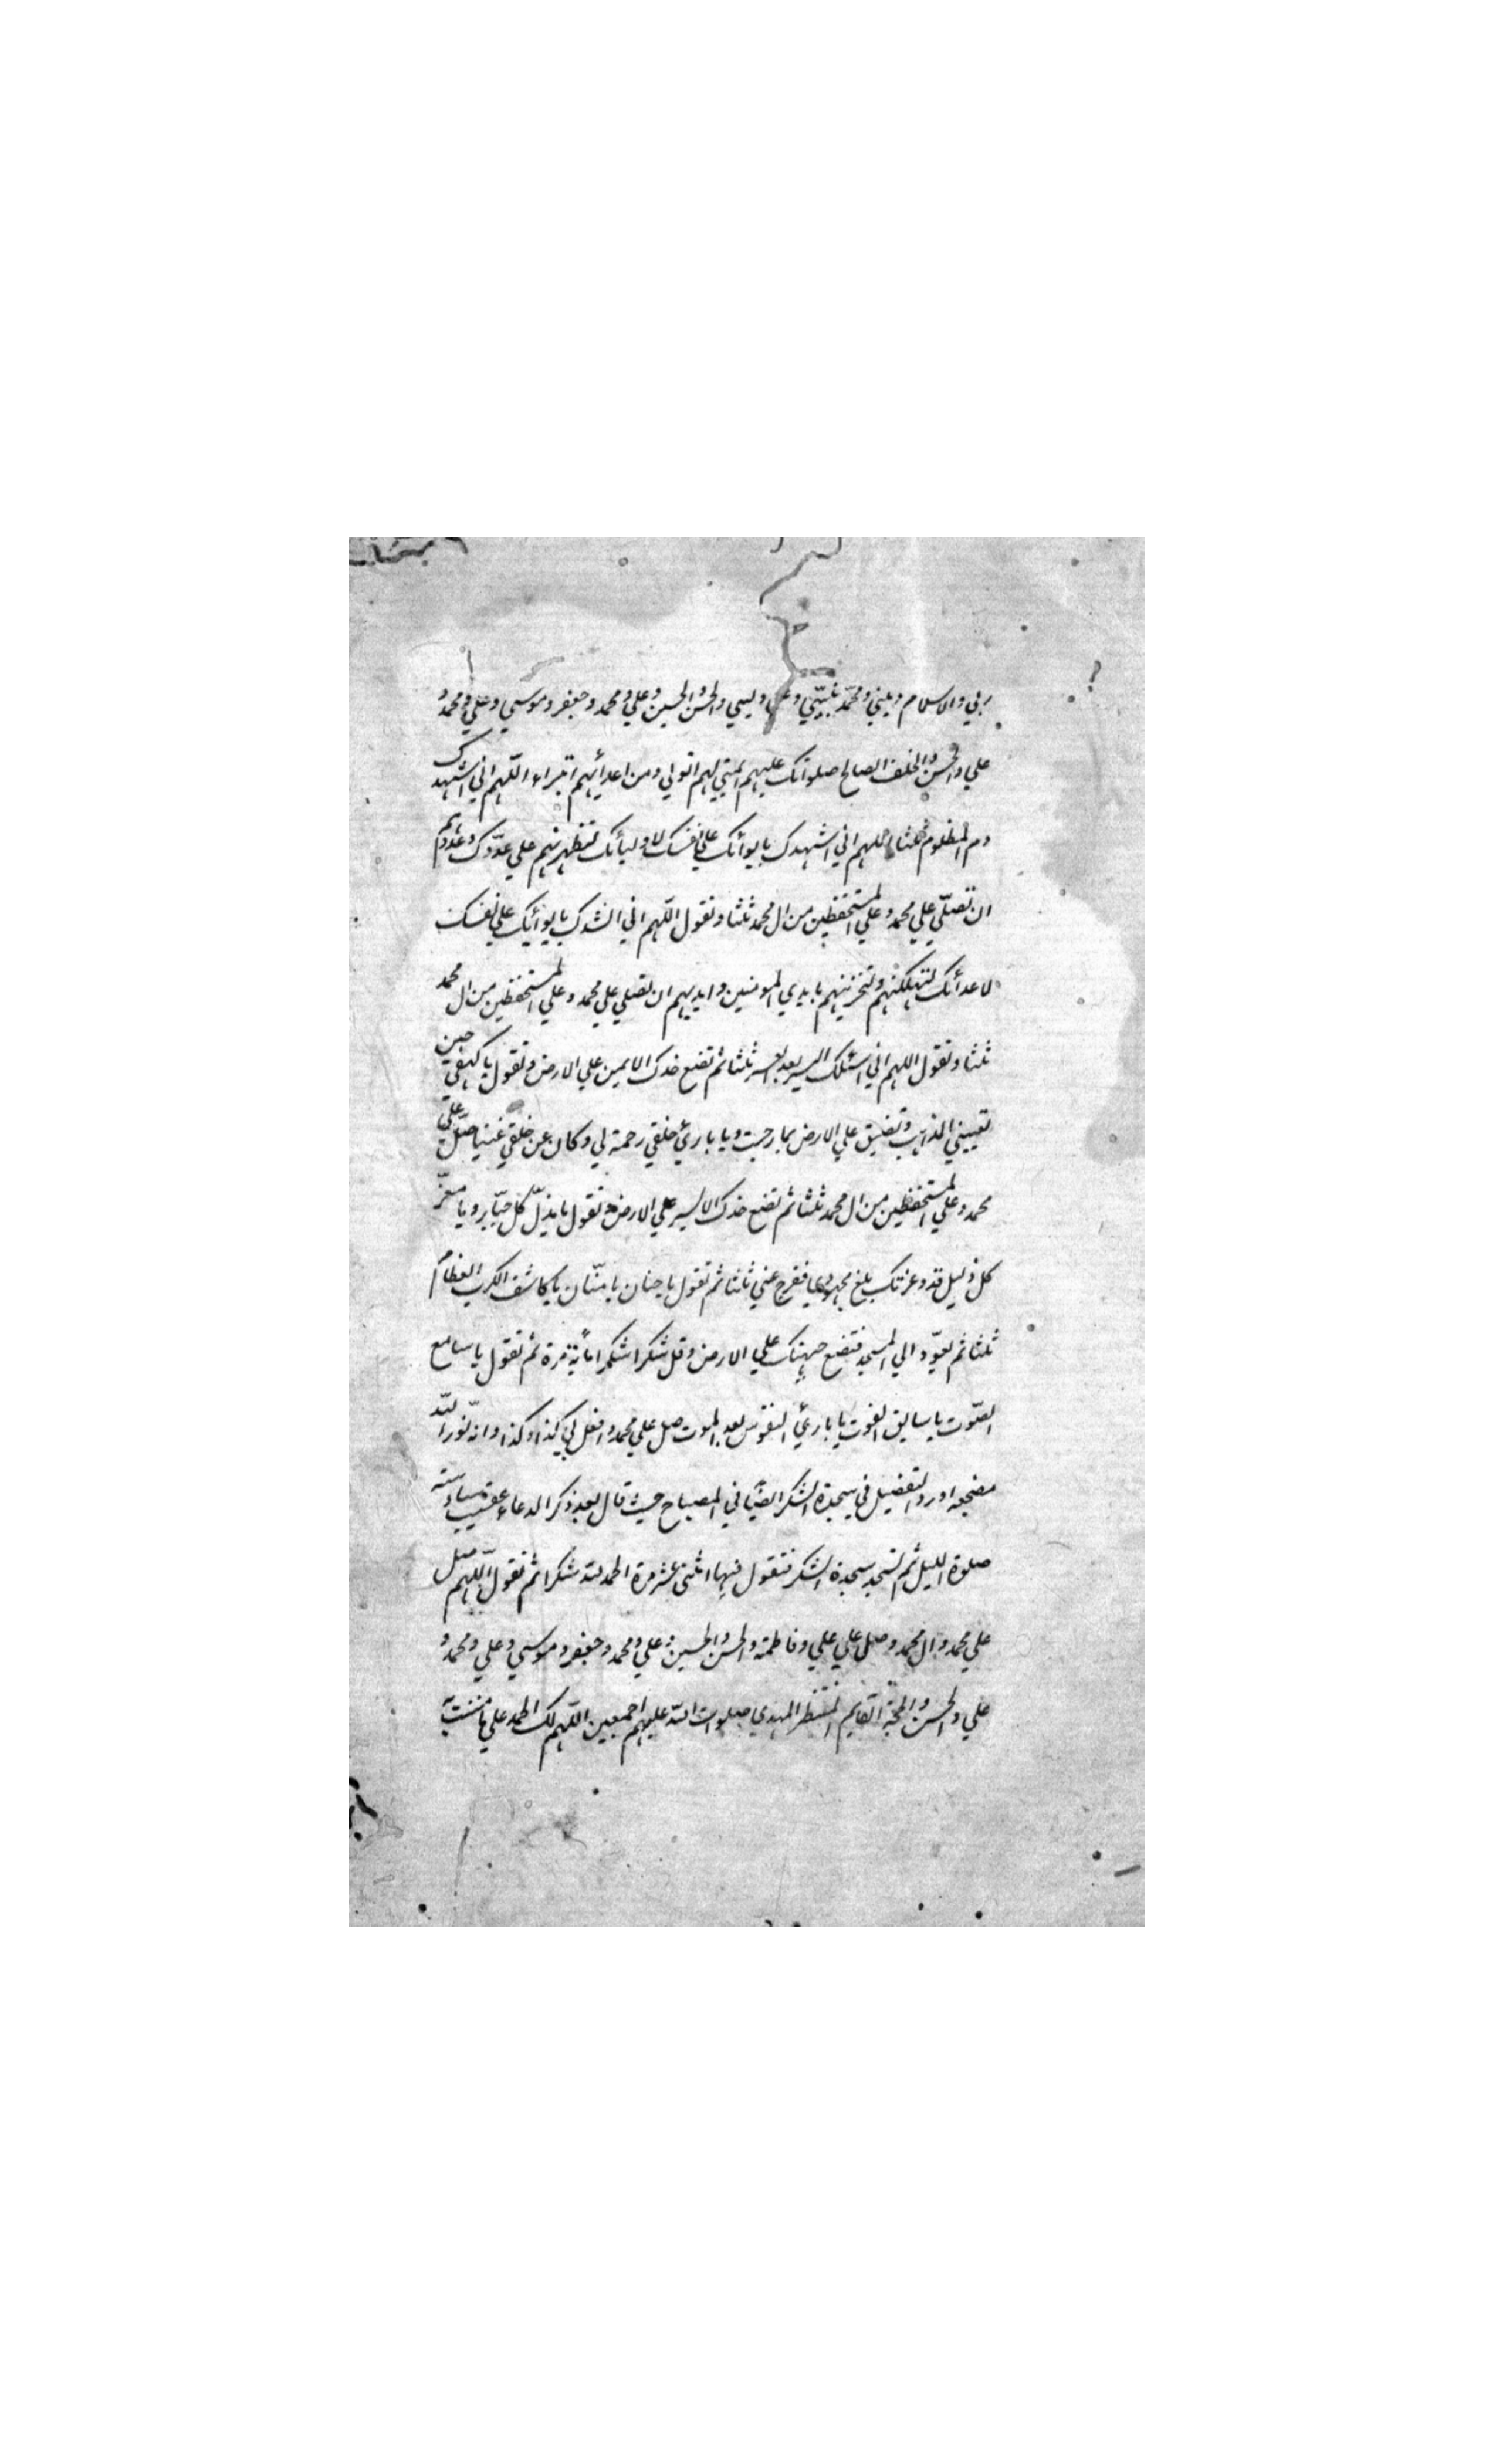 ربي والاسلام ديني ومحمّد نبيّي وعلي وليي والحسن والحسين وعلي ومحمد وجعفر وموسي وعلي ومحمد و
علي والحسن والخلف الصالح صلواتك عليهم ائمتي لهم اتولي ومن اعدائهم اتبراء اللّهم اني اشهدك
دم المظلوم ثلثا اللهم اني اشهدك بايوائك علي نفسك لاوليائك لتظهرنهم علي عدوّك وعدوهم
ان تصلّي علي محمد وعلي المستحفظين من ال محمد ثلثا وتقول اللّهم اني انشدك بايوائك علي نفسك
لاعدائك لتهلكنهم ولتخزينهم بايدي المومنين وايديهم ان تصلي علي محمد وعلي المستحفظين من ال محمد
ثلثا وتقول اللهم اني اسئلك اليسر بعد العسر ثلثا ثم تضع خدك الايمن علي الارض وتقول يا كهفي حين
تعييني المذاهب وتضيق علي الارض بما رحبت ويا بارئ خلقي رحمة لي وكان عن خلقي غنيا صلّ علي
محمد وعلي المستحفظين من ال محمد ثلثا ثم تضع خدك الايسر علي الارض وتقول يا مذلّ كل جبّار ويا معزّ
كل ذليل قد وعزتك بلغ مجهودي ففرج عني ثلثا ثم تقول يا حنان يا منّان يا كاشف الكرب العظام
ثلثا ثم تعوّد الي المسجد فتضع جبهتك علي الارض وقل شكرا شكرا ماية مرة ثم تقول يا سامع
الصّوت يا سابق الفوت يا بارئ النفوس بعد الموت صل علي محمد وافعل بي كذا وكذا وانّه نور اللّه
مضجعه اورد التفضيل في سجدة الشكر ايضا في المصباح حيث قال بعد ذكر الدعاء عقيب
صلوة الليل ثم تسجد سجدة الشكر فتقول فيها اثنتي عشر مرة الحمد لله شكرا ثم تقول اللّهم صل
علي محمد وال محمد وصل علي علي وفاطمة والحسن والحسين وعلي ومحمد وجعفر وموسي وعلي ومحمد و
علي والحسن والحجة القايم المنتظر المهدي صلوات اللّه عليهم اجمعين اللّهم لك الحمد علي ما مننت به